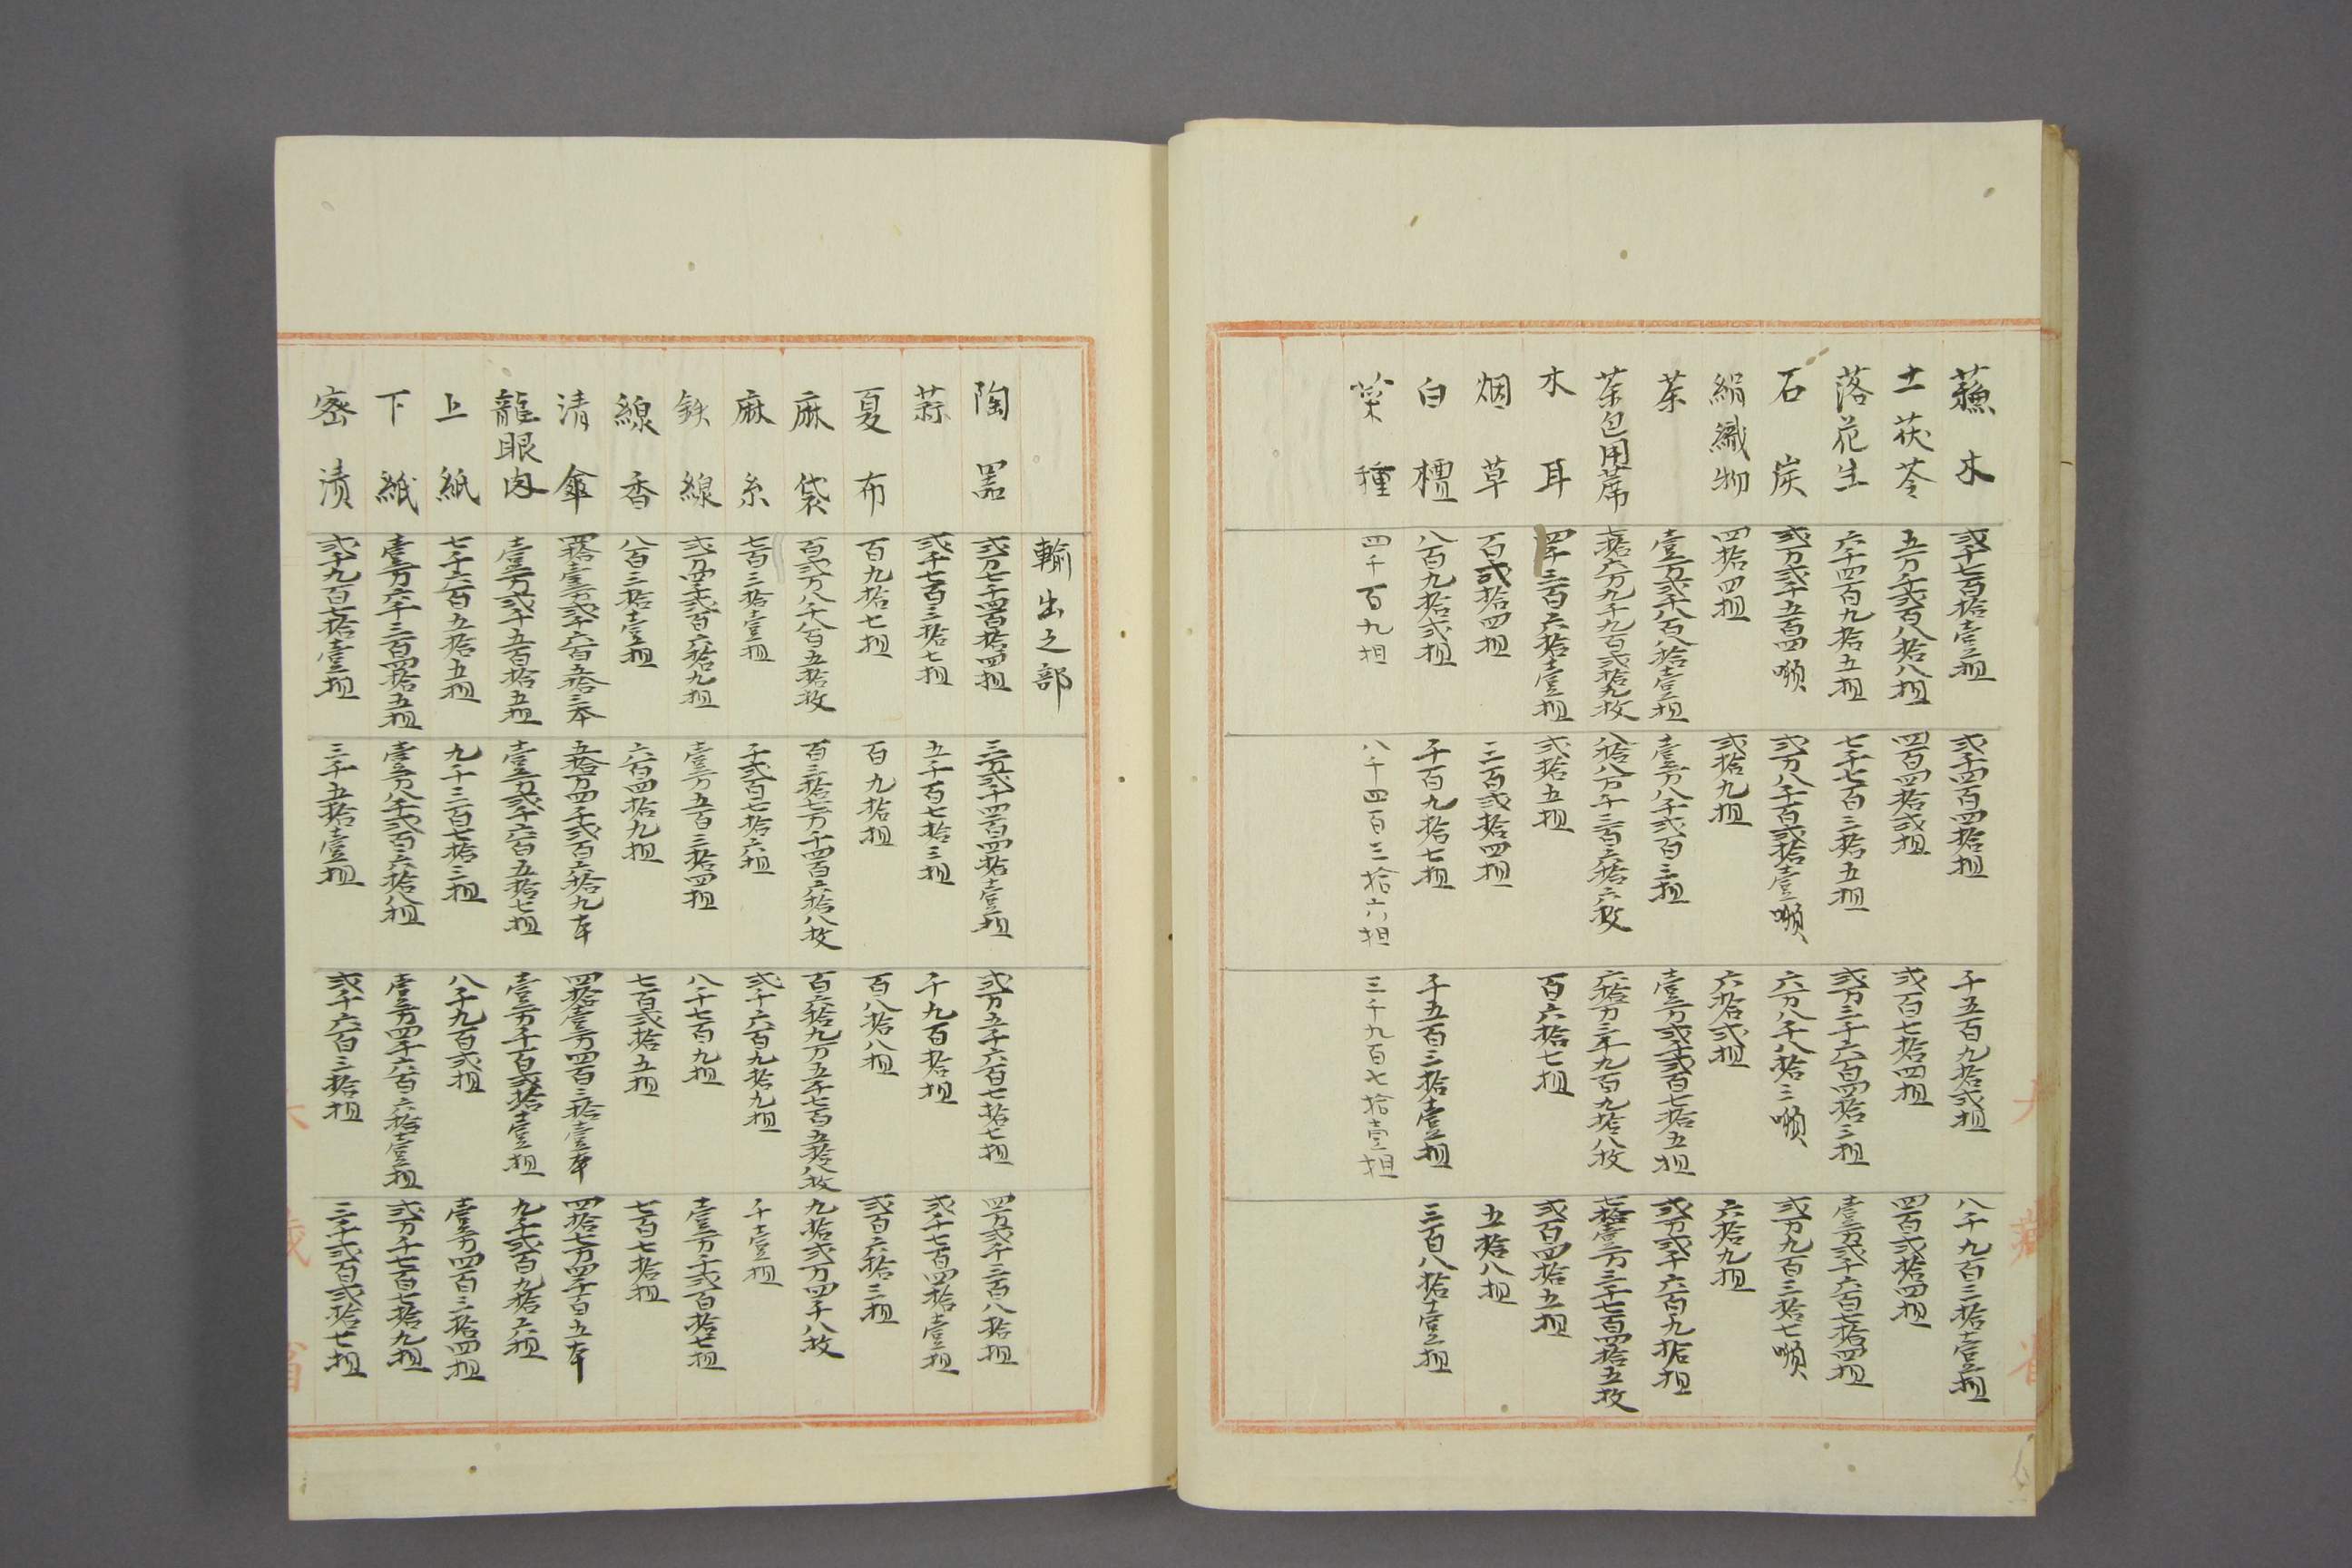 蘓木 弐千七百拾壹担 弐千四百四拾担 千五百九拾弐担 八千九百三拾壹担
土茯苓 五万弐百八拾八担 四百四拾弐担 弐百七拾四担 四百弐拾四担
落花生 六千四百九拾五担 七千七百三拾五担 弐万三千六百四拾三担 壹万弐千六百七拾四担
石炭 弐万弐千五百四噸 弐万八千百弐拾壹噸 六万八千八拾三噸 弐万九百三拾七噸
絹織物 四拾四担 弐拾九担 六拾弐担 六拾九担
茶 壹万弐千八百八拾壹担 壹万八千弐百三担 壹万弐千弐百七拾五担 弐万弐千六百九拾担
茶包用蓆 七拾六万九千九百弐拾九枚 八拾八万千三百六拾六枚 六拾万三千九百九拾八枚 七拾壹万三千七百四拾五枚
木耳 四千三百六拾壹担 弐拾五担 百六拾七担 弐百四拾五担
烟草 百弐拾四担 三百弐拾四担 五拾八担
白檀 八百九拾弐担 千百九拾七担 千五百三拾壹担 三百八拾壹担
菜種 四千百九担 八千四百三拾六担 三千九百七拾壹担
輸出之部
陶器 弐万七千四百拾四担 三万弐千四百四拾壹担 弐万五千六百七拾七担 四万弐千三百八拾担
蒜 弐千七百三拾七担 五千百七拾三担 千九百拾担 弐千七百四拾壹担
夏布 百九拾七担 百九拾担 百八拾八担 弐百六拾三担
麻袋 百弐万八千八百五拾枚 百三拾七万千四百六拾八枚 百六拾九万五千七百五拾八枚 九拾弐万四千八枚
麻糸 七百三拾壹担 千弐百七拾六担 弐千六百九拾九担 千壹担
鉄線 弐万四千弐百六拾九担 壹万五百三拾四担 八千七百九担 壹万千弐百拾七担
線香 八百三拾壹担 六百四拾九担 七百弐拾五担 七百七拾担
清傘 四拾壹万弐千六百五拾三本 五拾万四千弐百六拾九本 四拾壹万四百三拾壹本 四拾七万四千百五本
龍眼肉 壹万弐千五百拾五担 壹万弐千六百五拾七担 壹万千百弐拾壹担 九千弐百九拾六担
上紙 七千六百五拾五担 九千三百七拾三担 八千九百弐担 壹万四百三拾四担
下紙 壹万六千三百四拾五担 壹万八千弐百六拾八担 壹万四千六百六拾壹担 弐万千七百七拾九担
密漬 弐千九百七拾壹担 三千五拾壹担 弐千六百三拾担 三千弐百弐拾七担